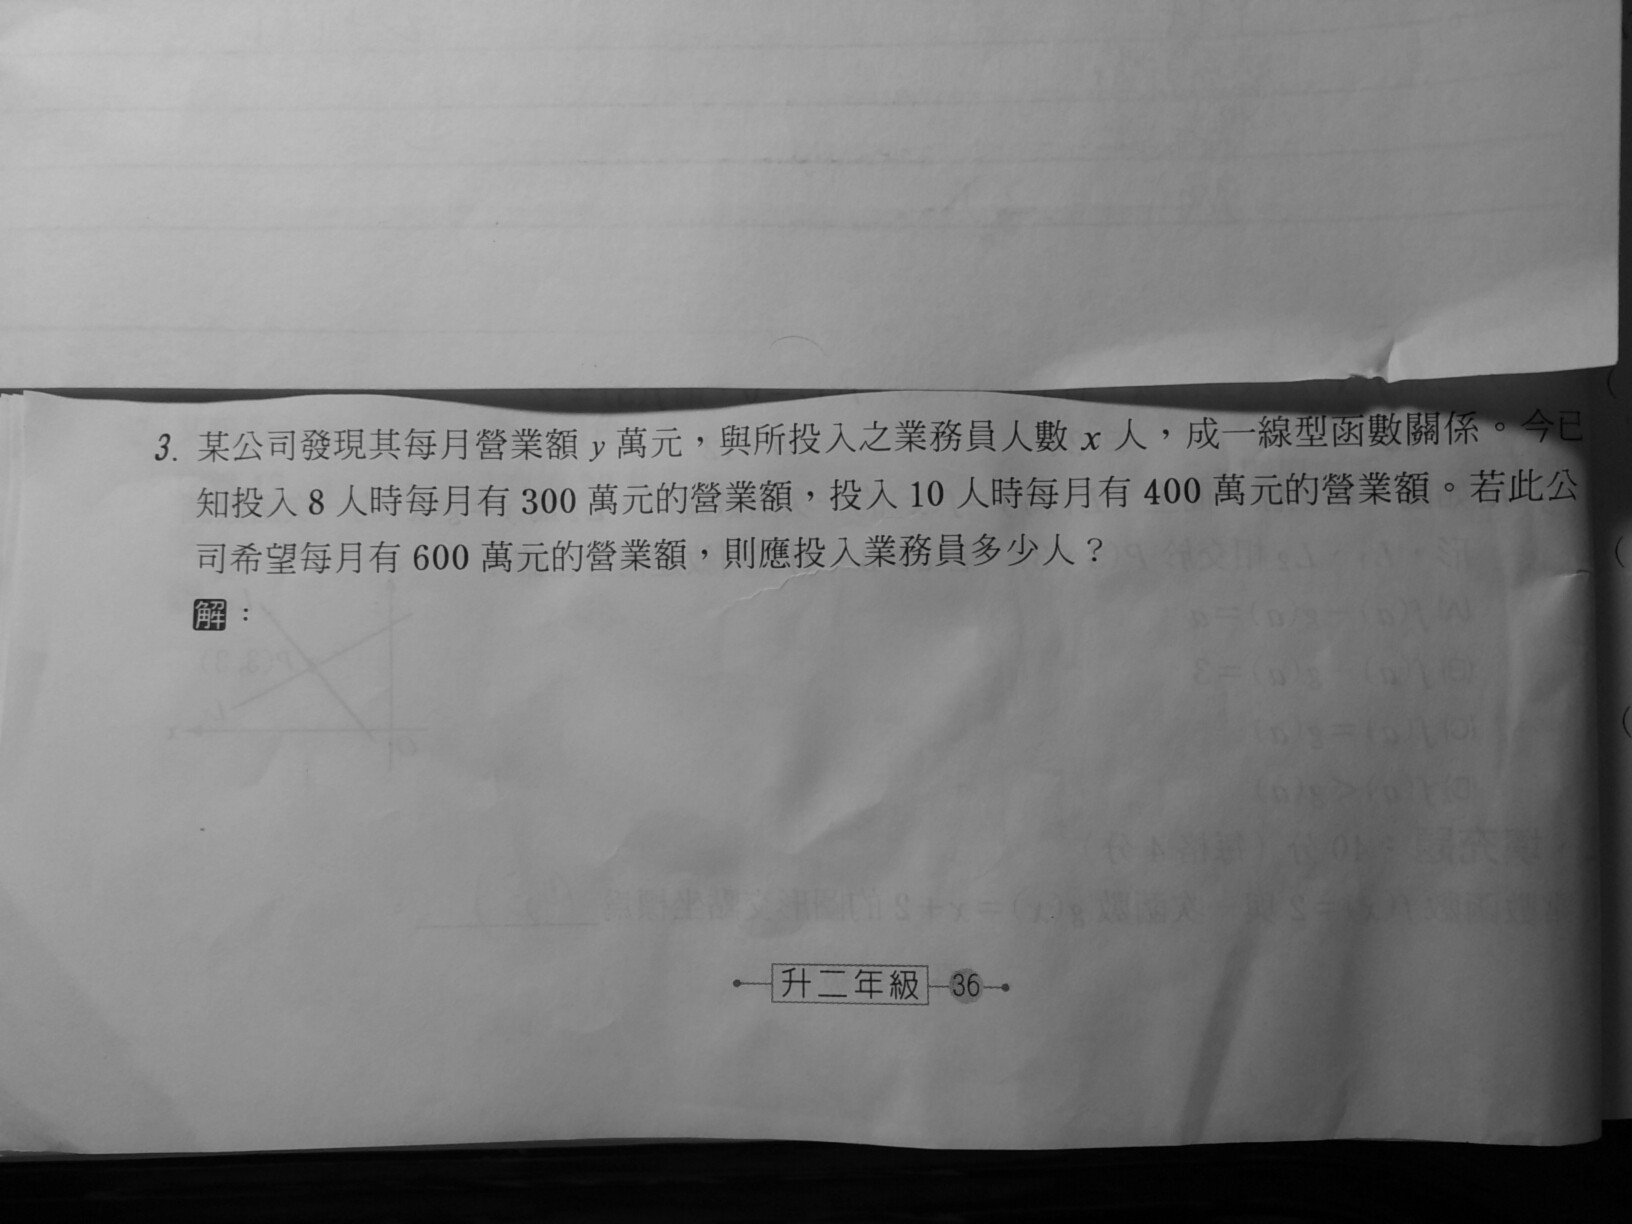 3. 某公司發現其每月營業額 y 萬元，與所投入之業務員人數 x 人，成一線型函數關係。今已
知投入 8 人時每月有 300 萬元的營業額，投入 10 人時每月有 400 萬元的營業額。若此公
司希望每月有 600 萬元的營業額，則應投入業務員多少人？
解：
升二年級 36